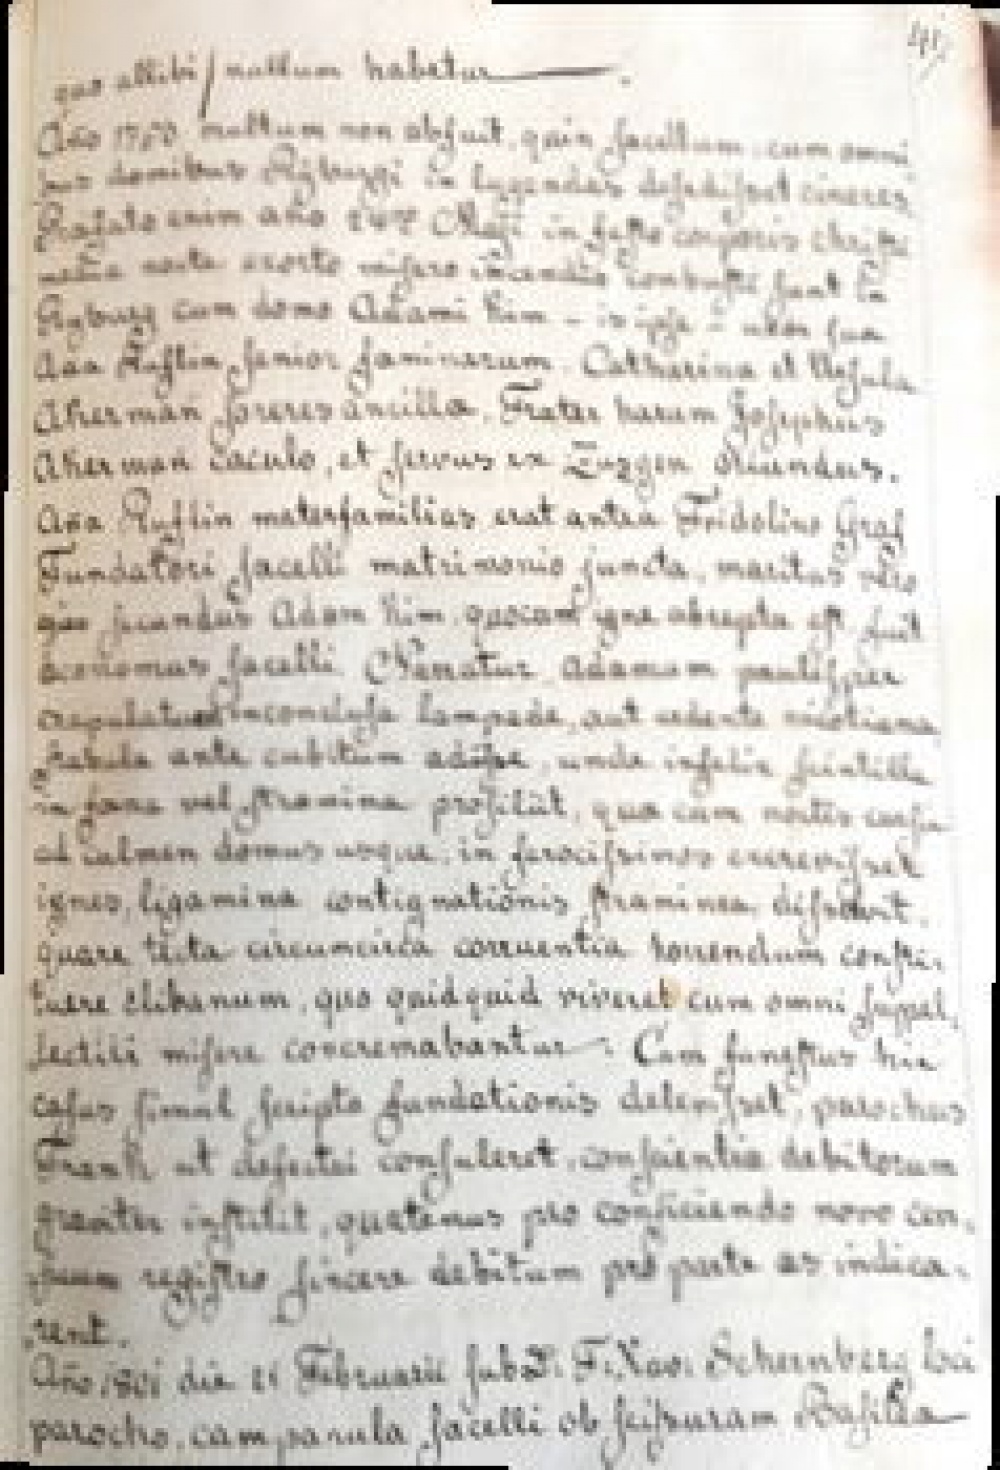 quo allibi nullum habetur
Año 1750 multum non abfuit, quin sacellum cum omni
bus domibus Rÿburgi in lugendos desedisset cineres
Prafato enim año Maji in festo corporis christi
media nocte exorto misero incendio combusti sunt in
Rÿburg cum domo Adami Kim - is ipse - uxor sua
Aña senior faminarum. Catherina et Ursula
Akerman sorores ancilla. Frater harum Josephus
Akerman, et servus ex Zuzgen oriundus.
Aña materfamilias erat antea Fridolino Graf
Fundatori sacelli matrimonio juncta, maritus vero
secundus Adam Kim, quocum igne abrepta est fuit
aconomus sacelli. Narratur Adamum paulisper
lampade, aut
ante cubitum, unde infelix scintilla
in vel stramina prosiliit, qua cum noctis
ad culmen domus usque, in ferocissimos excrevisset
ignes, ligamina contignationis straminea,
quare tecta circumcirca corruentia horrendum consti-
tuere clibanum, quo quidquid viveret cum omni suppel,
lectili misere concremabantur. Cum funestus hic
casus simul scripta fundationis delevisset, parochus
Frank ut defectui consuleret, conscientia debitorum
graviter institit, quatenus pro conficiendo novo cen,
suum registro sincere debitum pro parte as indica,
rent.
Año 1801 die 21 Februarii sub D: F: Xav: Schernberg loci
parocho, campanula sacelli ob scissuram Basilea